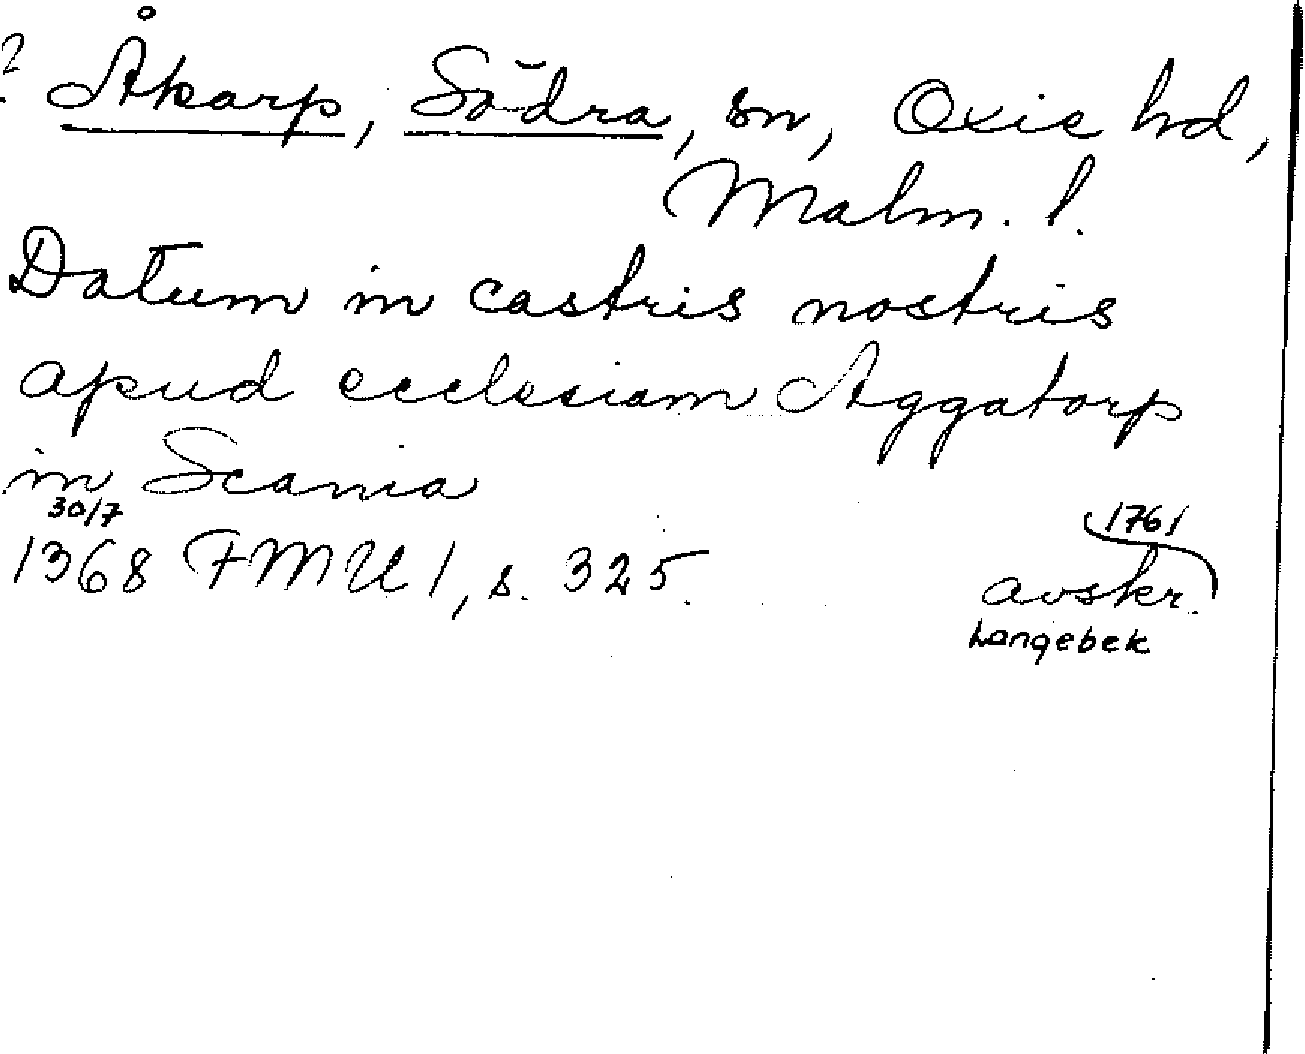 ? Åkarp, Södra, sn, Oxie hd,
Malm. l.
Datum in castris nostris
apud ecclesiam Aggatorp
in Scania
30/7
1368 FMU 1, s. 325.
1761
avskr.
Langebek